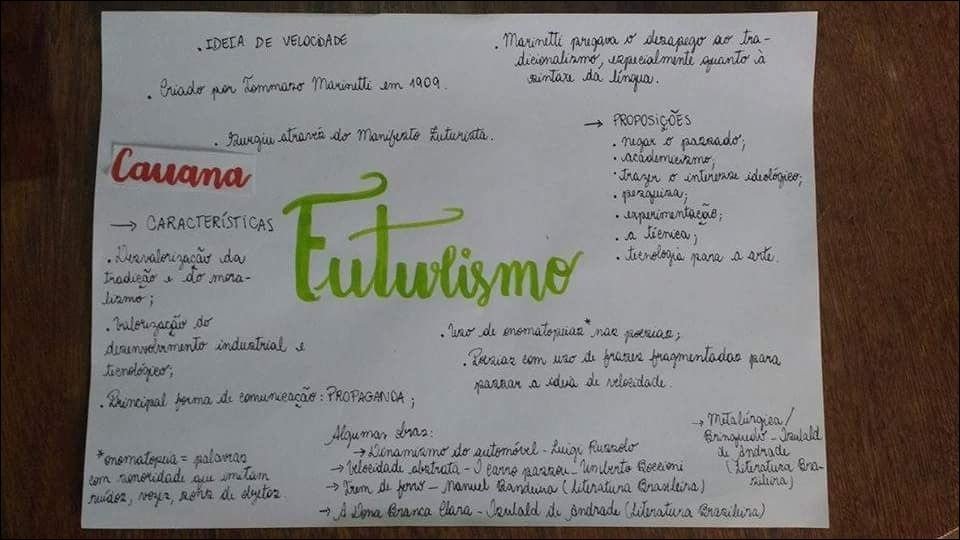 . IDEIA DE VELOCIDADE
. Criado por Tommazo Marinetti em 1909.
. Surgiu através do Manifesto Futurista.
. Marinetti pregava o desapego ao tra-
dicionalismo, especialmente quanto à
sintaxe da língua.
→ PROPOSIÇÕES
. negar o passado;
. academicismo;
. trazer o interesse ideológico;
. pesquisa;
. experimentação;
. a técnica;
. tecnologia para a arte.
Cauana
Futurismo
→ CARACTERÍSTICAS
. Desvalorização da
tradição e do mora-
lismo;
. Valorização do
desenvolvimento industrial e
tecnológico;
. Principal forma de comunicação: PROPAGANDA;
. Uso de onomatopeias* nas poesias;
. Poesias com uso de frases fragmentadas para
passar a ideia de velocidade.
*onomatopeia = palavras
com sonoridade que imitam
ruídos, vozes, sons de objetos.
Algumas obras:
→ Dinamismo do automóvel - Luigi Russolo
→ Velocidade abstrata - O carro passou - Umberto Boccioni
→ Trem de ferro - Manuel Bandeira (Literatura Brasileira)
→ À Dona Branca Clara - Oswald de Andrade (Literatura Brasileira)
→ Metalúrgica/
Brinquedo - Oswald
de Andrade
(Literatura Bra-
sileira)